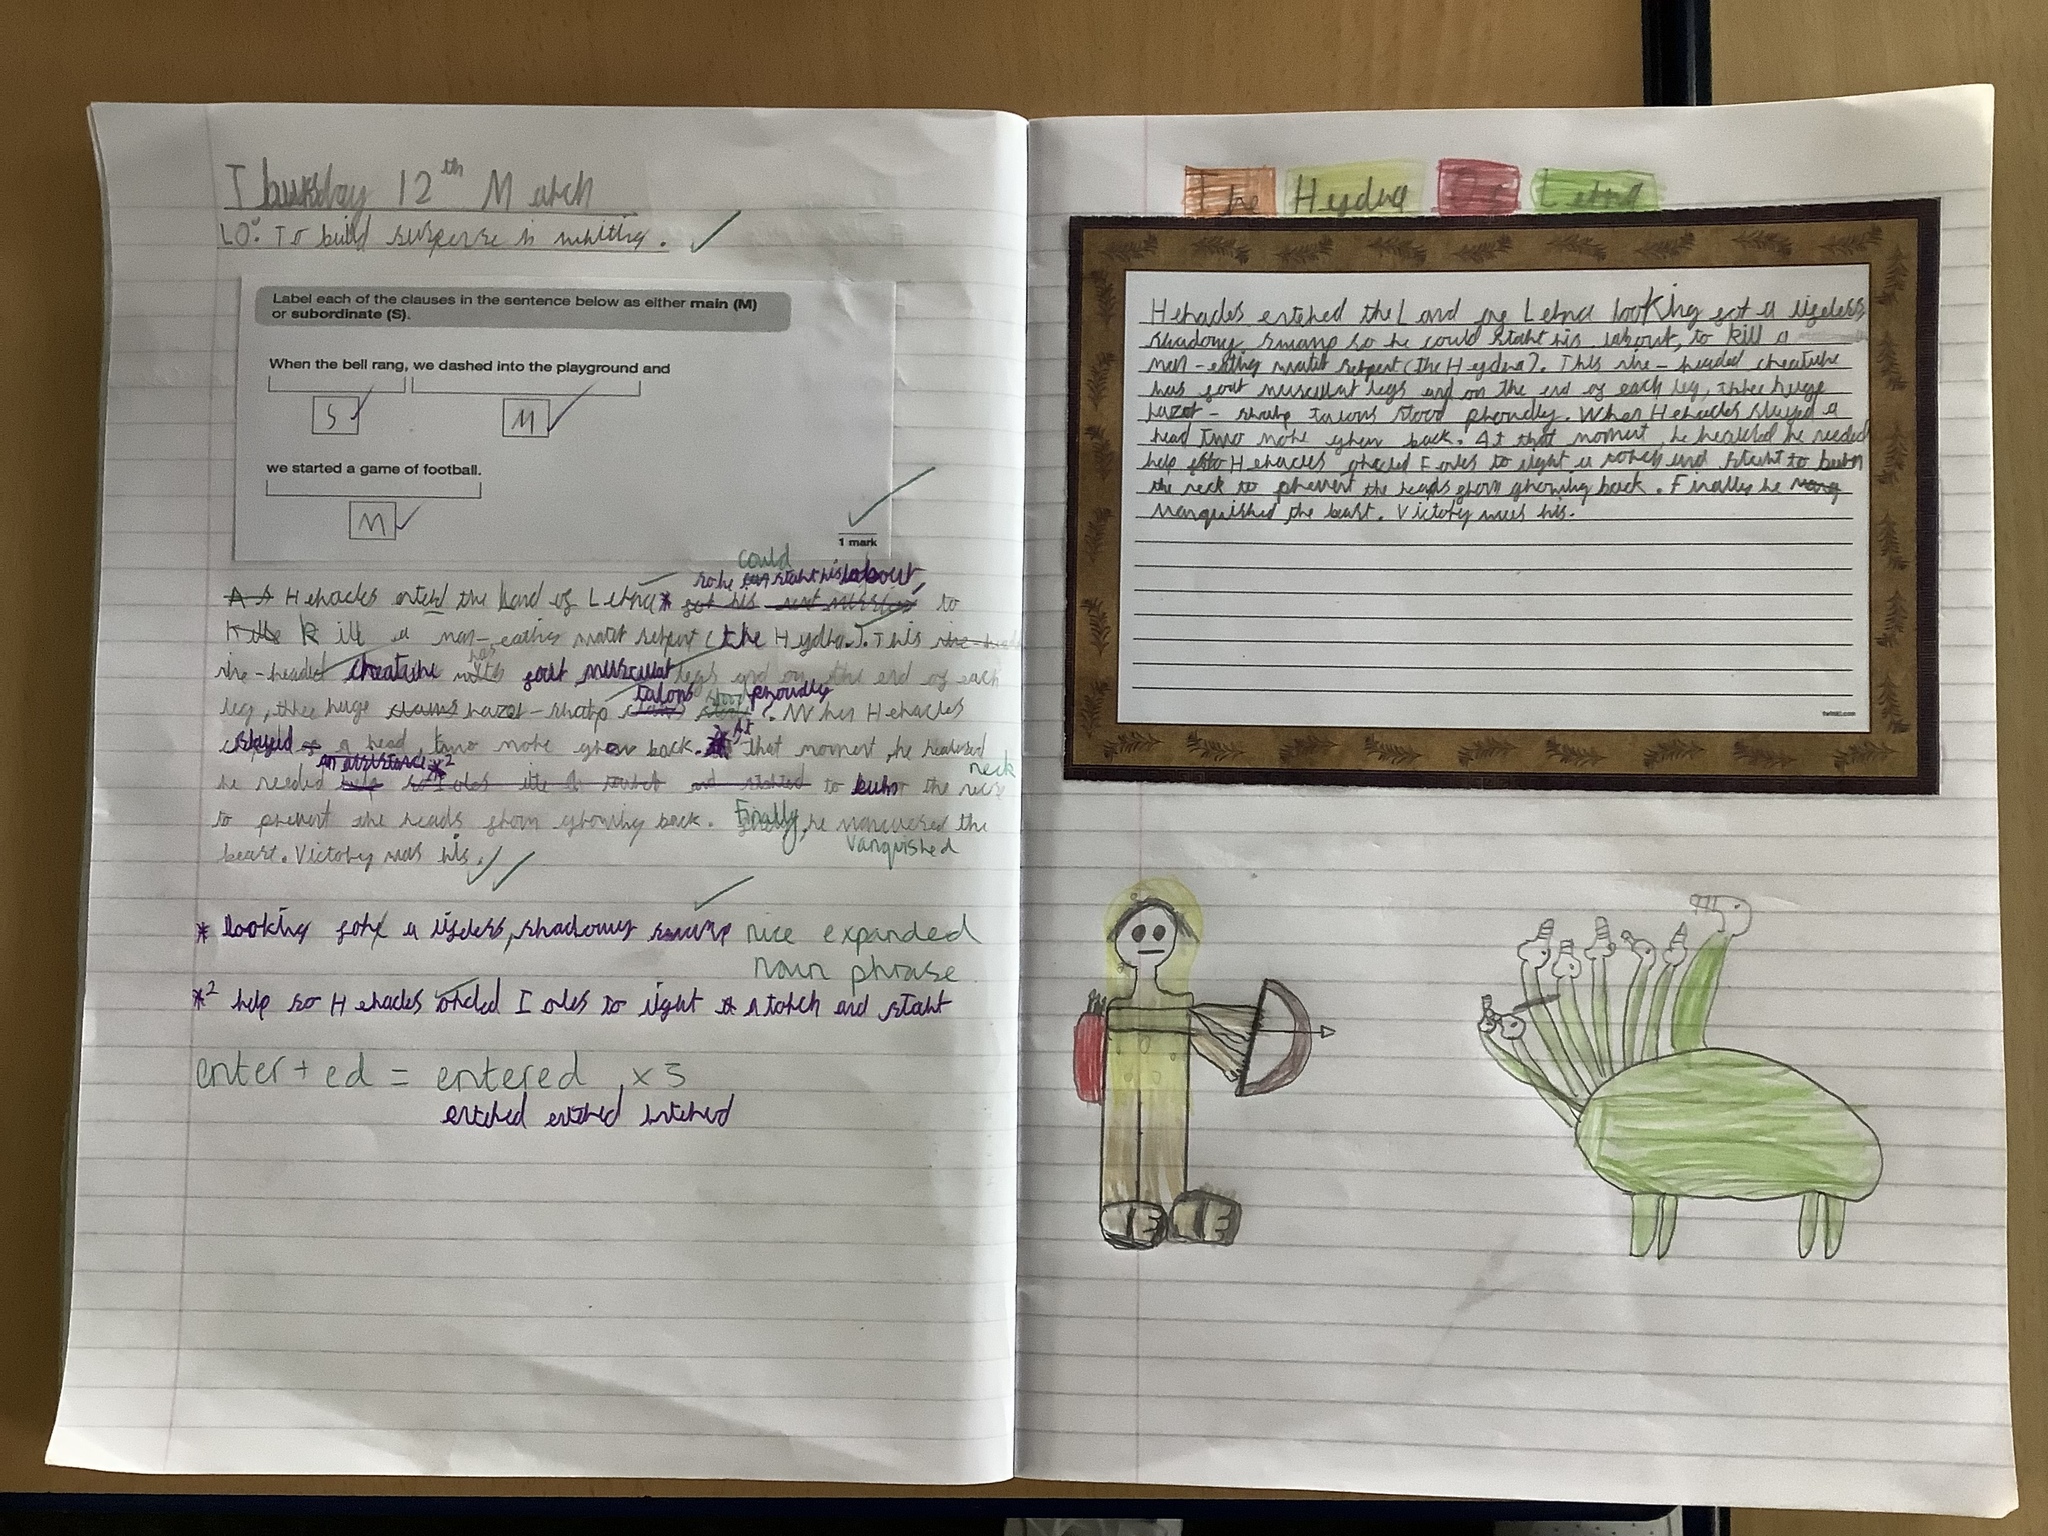 Thursday 12th March
LO: To build suspense in writing.
Label each of the clauses in the sentence below as either main (M)
or subordinate (S).
When the bell rang, we dashed into the playground and
S M
we started a game of football.
M
1 mark
could
so he can start his labour,
As Heracles enterd the land of Lerna* for his next mission to
Kille kill a man-eating water serpent (the Hydra). This nine-heade
has
nine-headed creature with four muscular legs and on the end of each
talons stood proudly
leg, three huge claws razor-sharp claws. When Heracles
slayed At
a head, two more grow back. That moment, he realised
an assistance *2 neck
he needed help so Iolas to and started to burn the
to prevent the heads from growing back. Finally, he the
vanquished
beast. Victory was his.
* looking for a lifeless, shadowy swamp nice expanded
noun phrase
*2 help so Heracles orded Iolas to light a torch and start
enter + ed = entered x 3
entered entered entered
The Heydra Of Lerna
Heracles entered the Land of Lerna looking for a lifeless
shadowy swamp so he could start his labour, to kill a
man-eating water serpent (the Heydra). This nine-headed creature
has four muscular legs and on the end of each leg, three huge
razor-sharp talons stood proudly. When Heracles slayed a
head two more grew back. At that moment, he realised he needed
help so Heracles orded Iolas to light a torch and start to burn
the neck to prevent the heads from growing back. Finally he
vanquished the beast. Victory was his.
twinkl.com